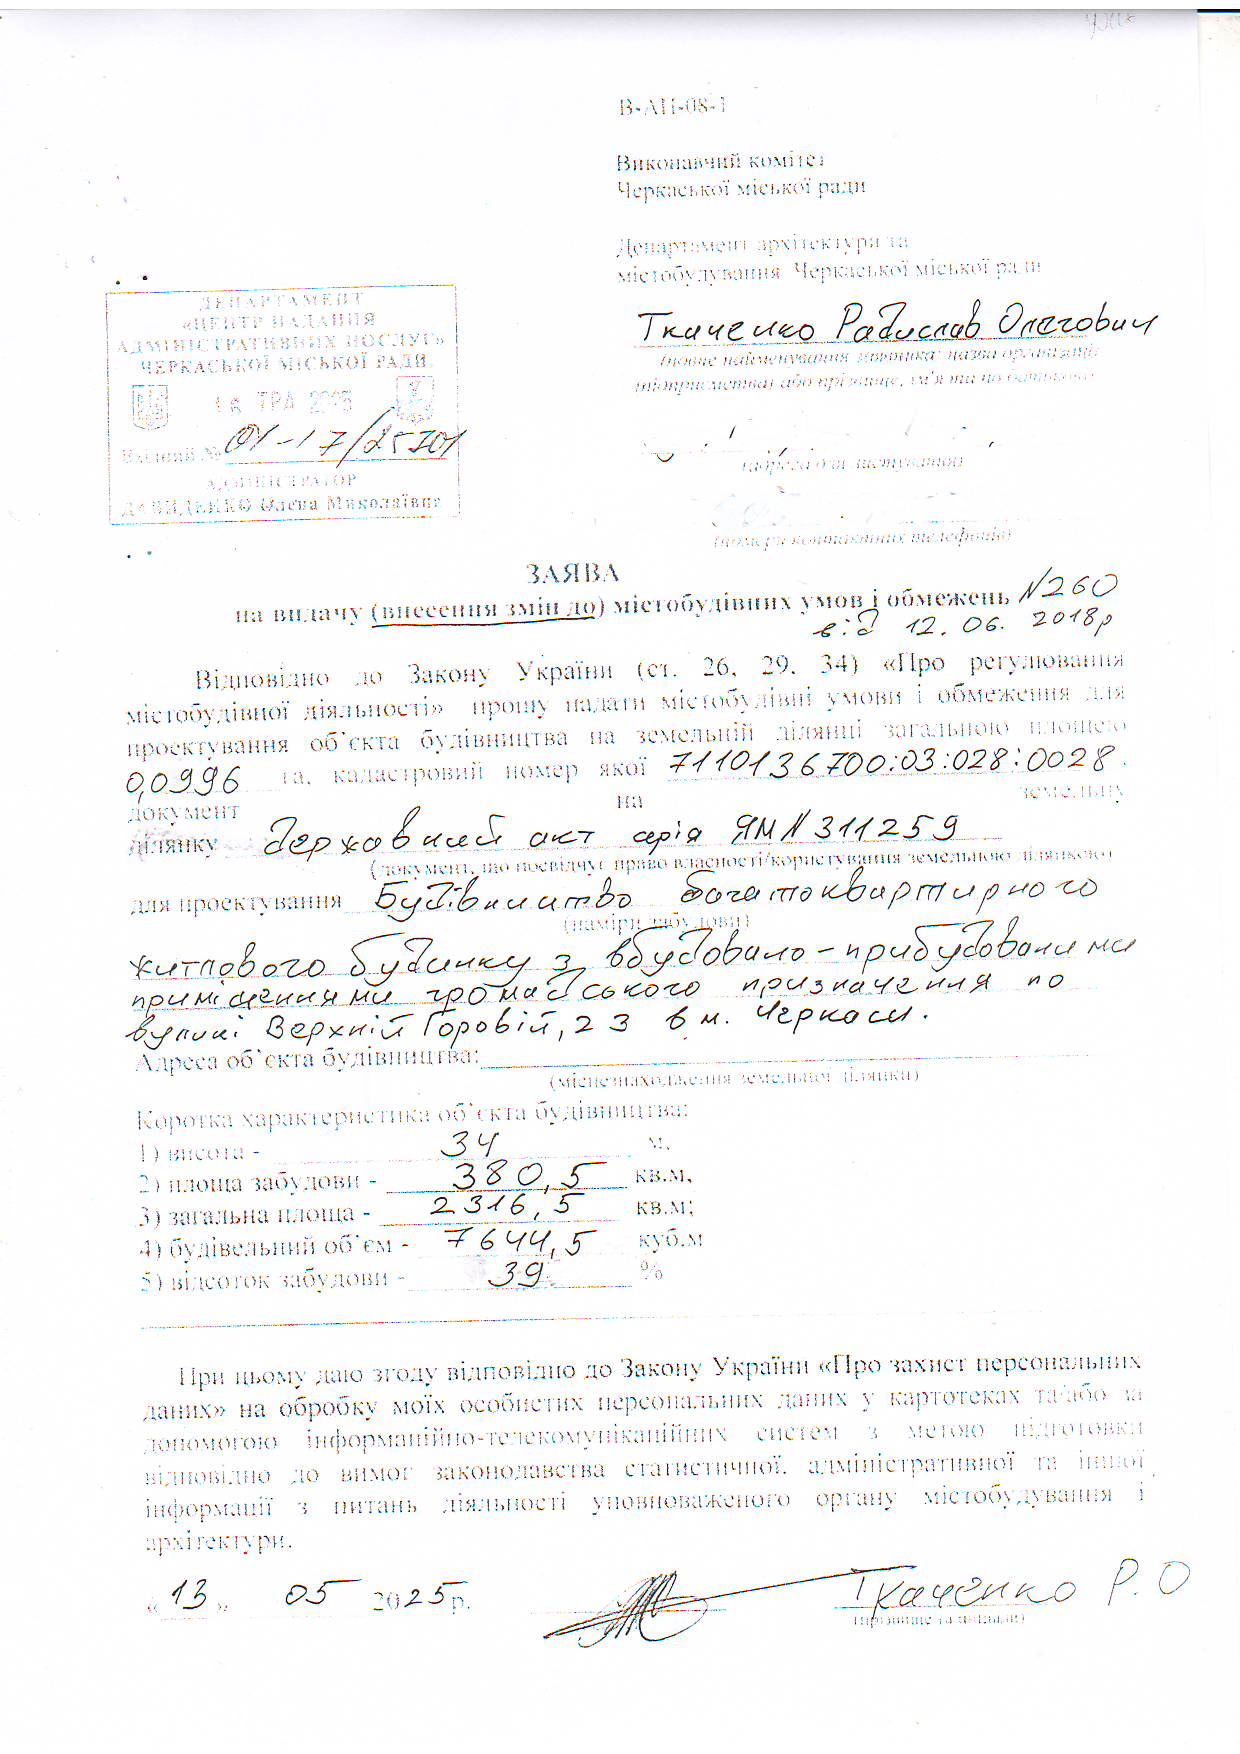 В-АП-08-1
Виконавчий комітет
Черкаської міської ради
Департамент архітектури та
містобудування Черкаської міської ради
ДЕПАРТАМЕНТ
«ЦЕНТР НАДАННЯ
АДМІНІСТРАТИВНИХ ПОСЛУГ»
ЧЕРКАСЬКОЇ МІСЬКОЇ РАДИ
ТРА 2025
Вхідний № 01-17/25701
АДМІНІСТРАТОР
ДАВИДЕНКО Олена Миколаївна
Ткаченко Радислав Олегович
(повне найменування заявника: назва організації
(підприємства) або прізвище, ім'я та по батькові)
(адреса для листування)
(номери контактних телефонів)
ЗАЯВА
на видачу (внесення змін до) містобудівних умов і обмежень №260
від 12.06.2018р
Відповідно до Закону України (ст. 26, 29, 34) «Про регулювання
містобудівної діяльності» прошу надати містобудівні умови і обмеження для
проектування об'єкта будівництва на земельній ділянці загальною площею
0,0996 га, кадастровий номер якої 7110136700:03:028:0028.
документ на земельну
ділянку Державний акт серія ЯМ№311259
(документ, що посвідчує право власності/користування земельною ділянкою)
для проектування Будівництво багатоквартирного
(наміри забудови)
житлового будинку з вбудовано-прибудованими
приміщеннями громадського призначення по
вулиці Верхній Горовій, 23 в м. Черкаси.
Адреса об'єкта будівництва:
(місцезнаходження земельної ділянки)
Коротка характеристика об'єкта будівництва:
1) висота - 34 м,
2) площа забудови - 380,5 кв.м,
3) загальна площа - 2316,5 кв.м;
4) будівельний об'єм - 7644,5 куб.м
5) відсоток забудови - 39 %
При цьому даю згоду відповідно до Закону України «Про захист персональних
даних» на обробку моїх особистих персональних даних у картотеках та/або за
допомогою інформаційно-телекомунікаційних систем з метою підготовки
відповідно до вимог законодавства статистичної, адміністративної та іншої
інформації з питань діяльності уповноваженого органу містобудування і
архітектури.
« 13 » 05 2025р. Ткаченко Р.О
(прізвище та ініціали)